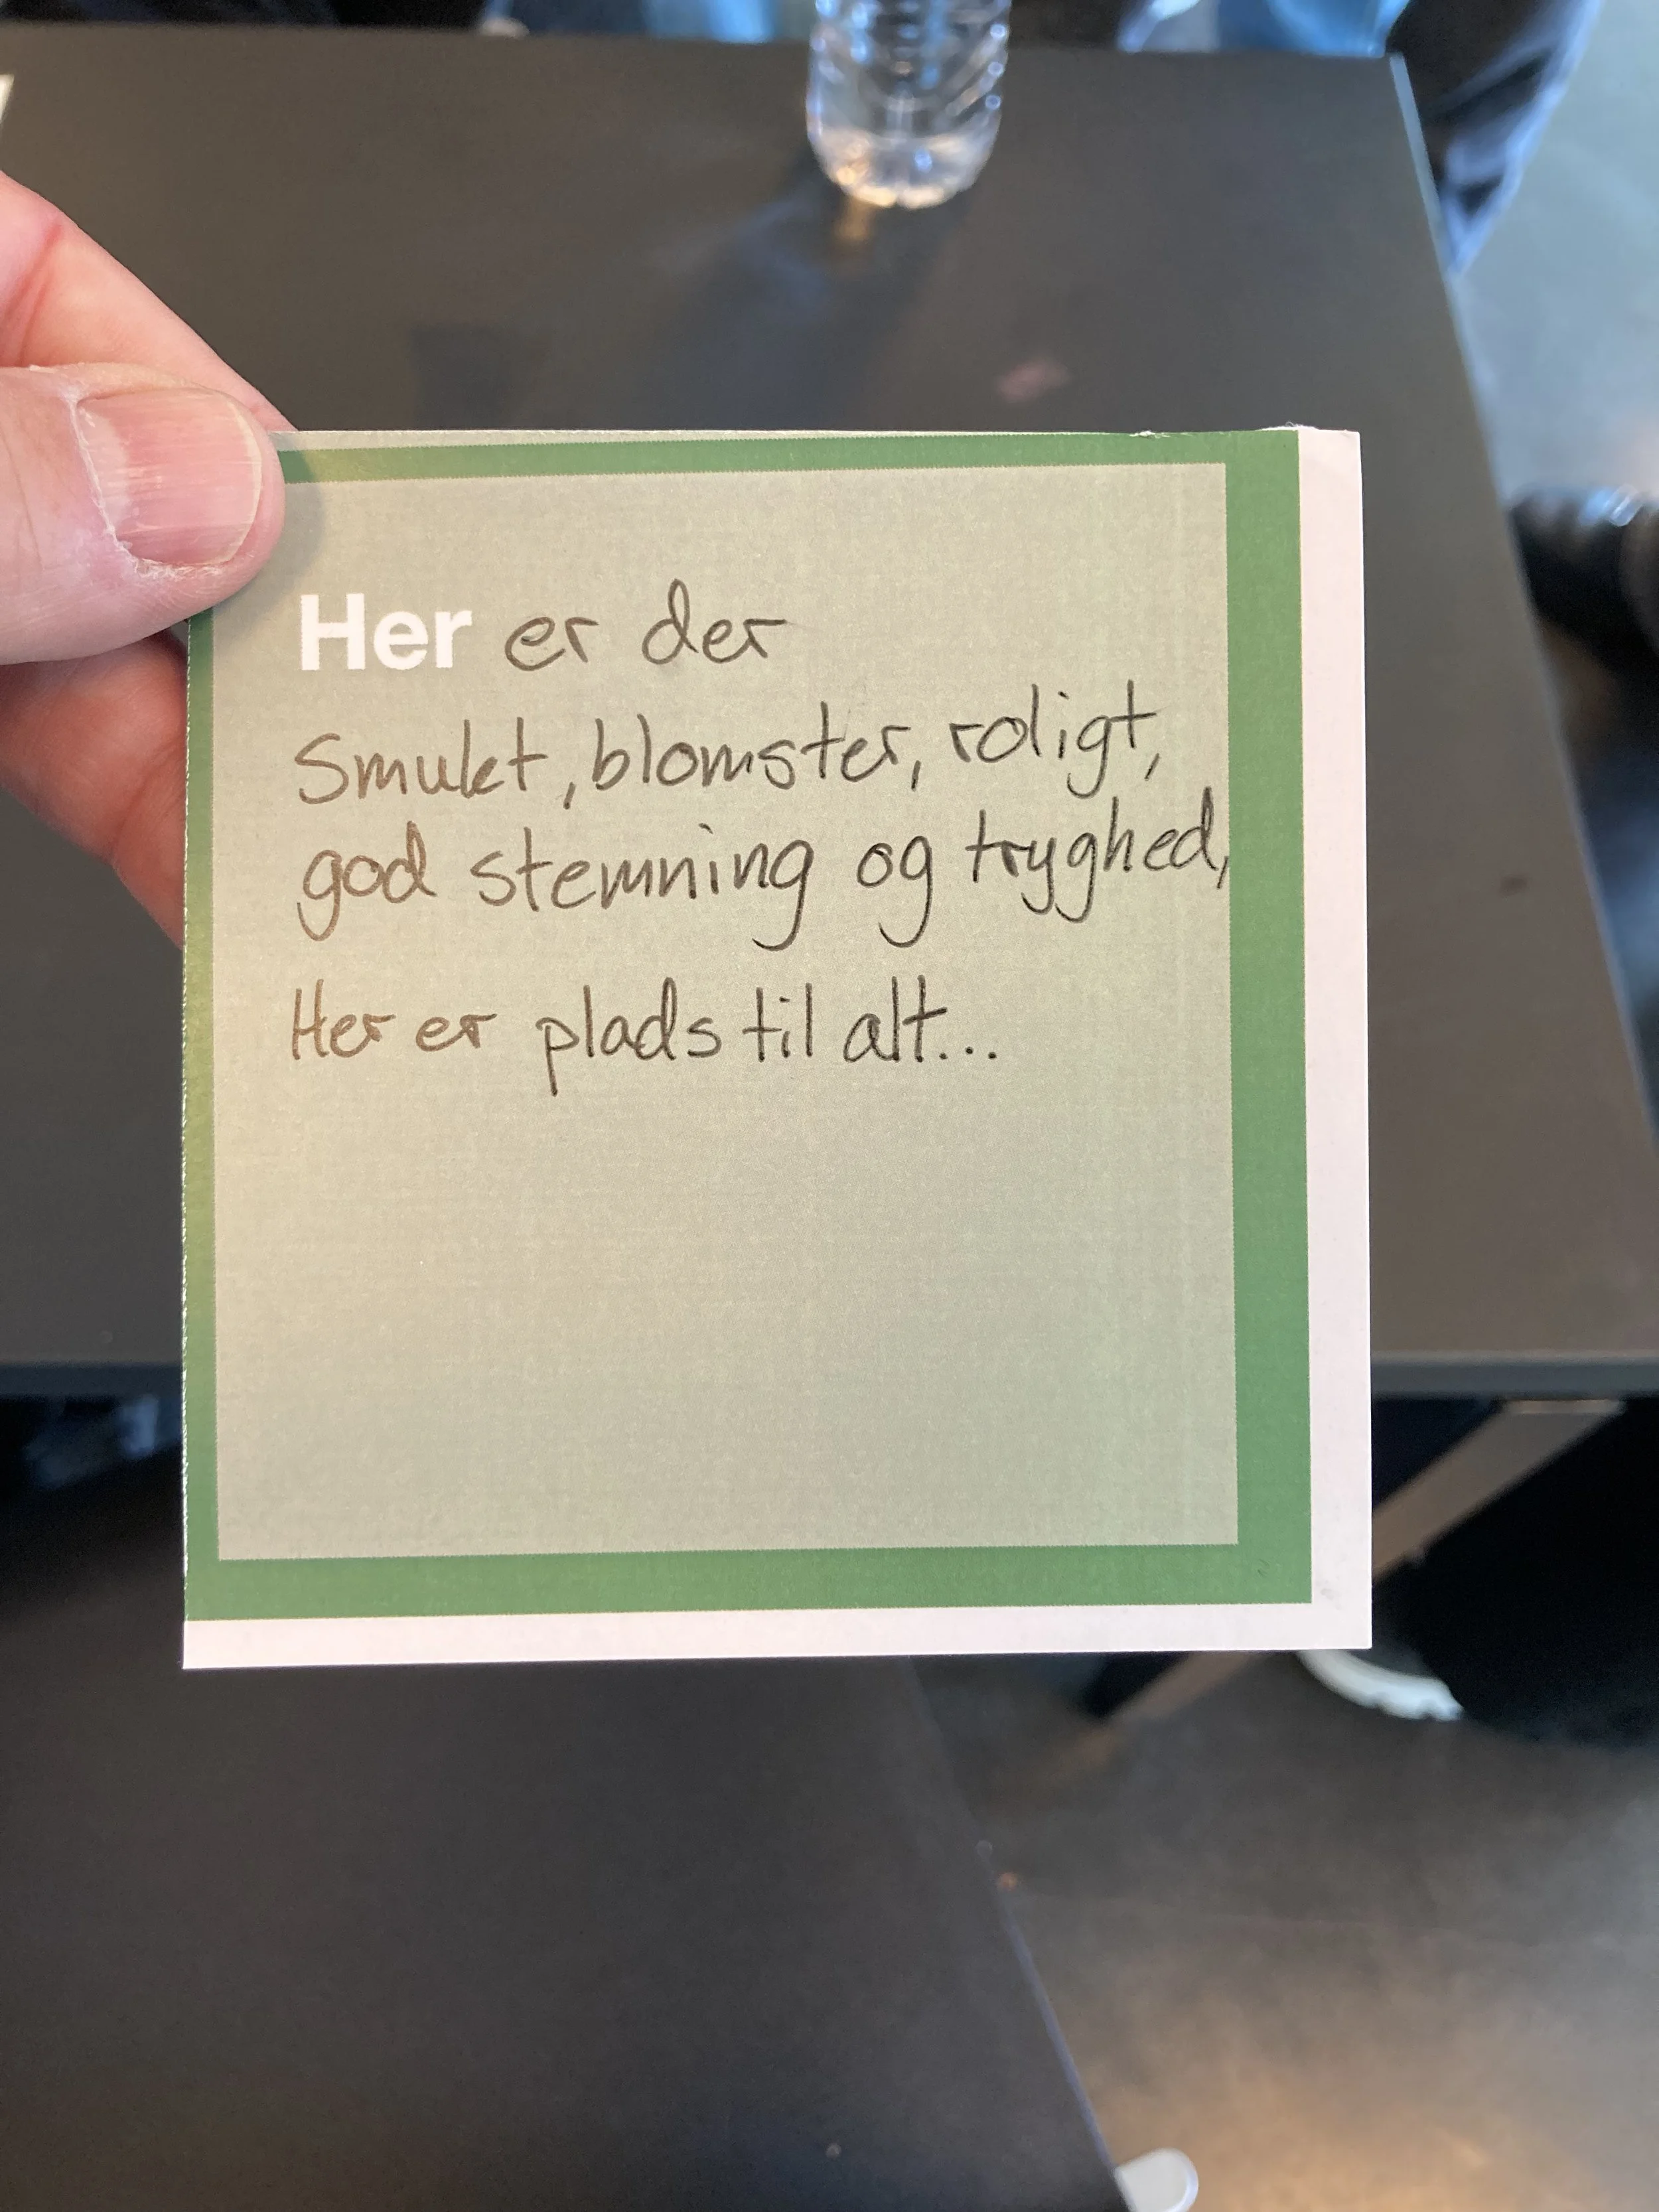 Her er der
Smukt, blomster, roligt,
god stemning og tryghed,
Her er plads til alt...